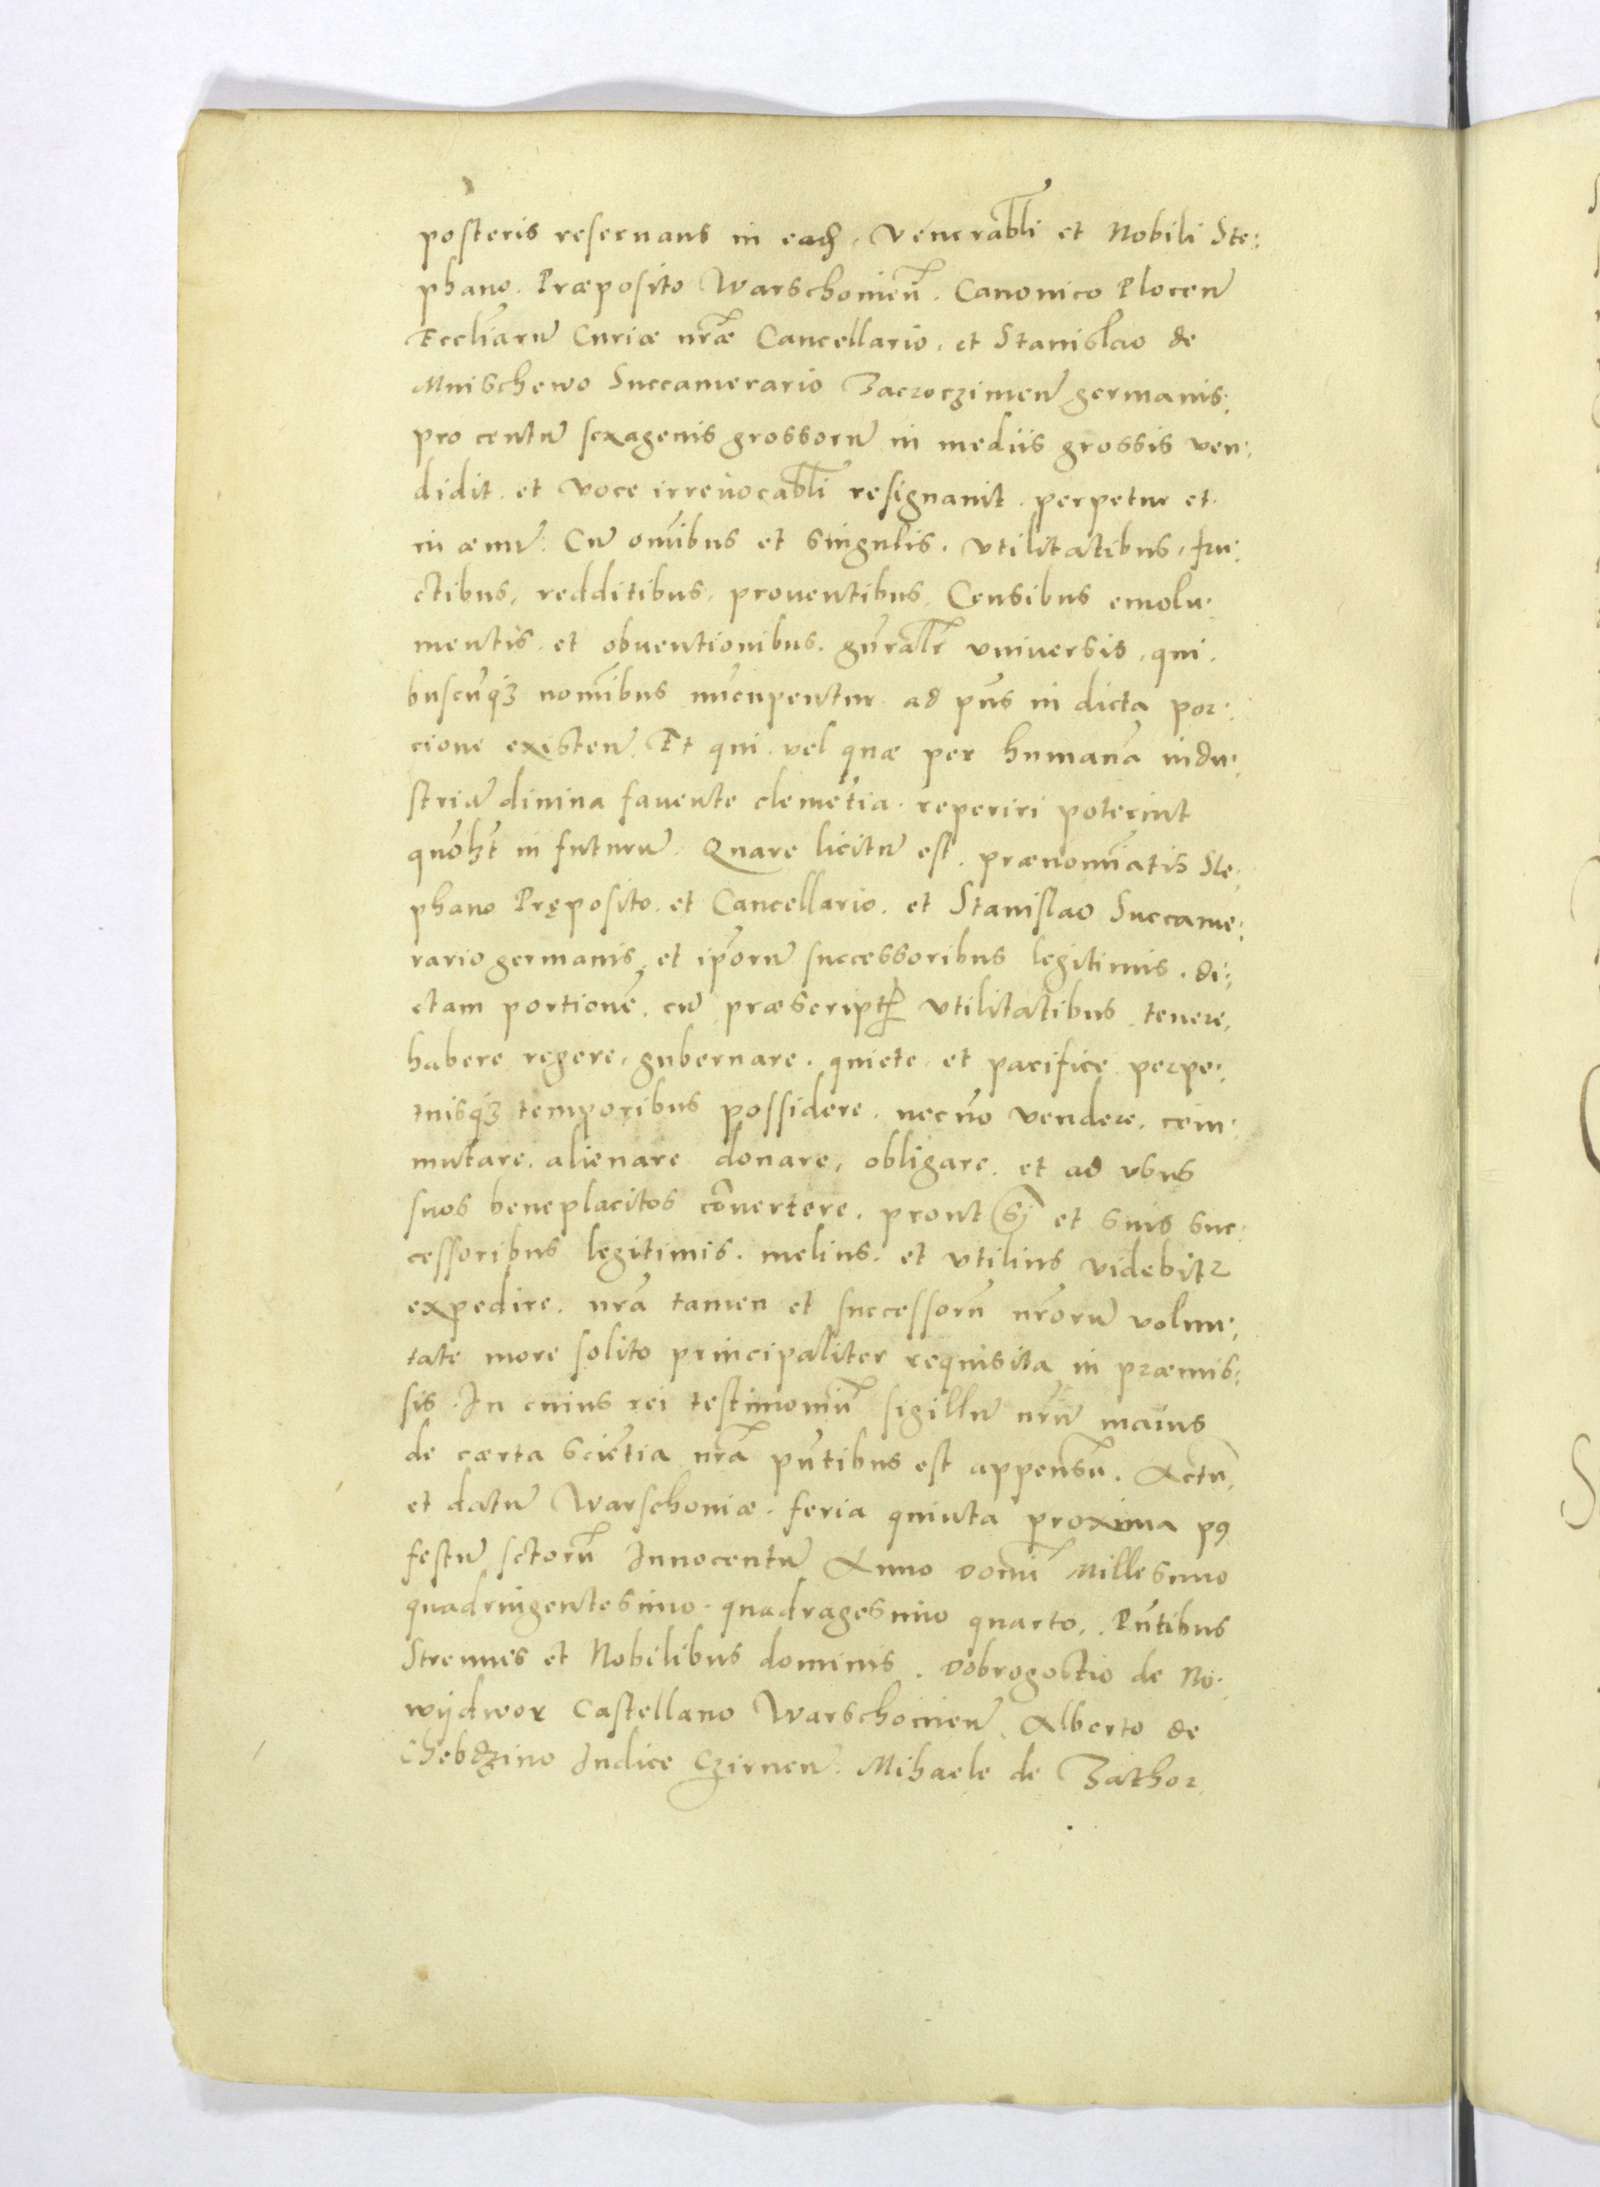 posteris reseruans in eadē, Venerabłi et Nobili Ste:
phano. Præposito Warschouien̄. Canonico Plocen̄
Eccłiarū Curiæ nr̄æ Cancellario. et Stanislao de
Mnischewo Succamerario Zacroczimen̄ germanis.
pro centū sexagenis grossorū in mediis grossis ven:
didit. et voce irreuocabłi resignauit. perpetue et
in æuū. Cū om̄ibus et singulis. vtilitatibus, fru:
ctibus, redditibus, prouentibus, Censibus emolu:
mentis. et obuentionibus. gn̄ralr̄ vniuersis, qui:
buscūq̨ nomībus nūcupentur ad pn̄s in dicta por:
cione existen̄. Et qui vel quæ per humanā indu:
striā diuina fauente clemētia. reperiri poterint
quōłt in futurū. Quare licitū est. prænomīatis Ste:
phano Pręposito. et Cancellario. et Stanislao Succame:
rario germanis, et ip̄orū successoribus legitimis. di:
ctam portionē. cū præscriptꝭ vtilitatibus tenere,
habere regere, gubernare. quiete et pacifice perpe:
tuisq̨ temporibus possidere. necn̄o vendere, com:
mutare. alienare donare, obligare. et ad vsus
suos beneplacitos cōuertere. prout sj̄ et suis suc:
cessoribus legitimis. melius. et vtilius videbitr
expedire. nr̄a tamen et successorū nr̄orū volun:
tate more solito principaliter requisita in præmis:
sis. In cuius rei testimoniū sigillū nr̄ū maius
de cærta sciētia nr̄a pn̄tibus est appensū. Actū
et datū Warschouiæ. feria quinta proxima pꝯ
festū sctorū Innocentū Anno Domī Millesimo
quadringentesimo quadragesimo quarto,. Pn̄tibus
Strenuis et Nobilibus dominis. Dobrogostio de No:
wijdwor Castellano Warschouien̄. Alberto de
Chebdzino Iudice Czirnen̄. Mihaele de Zathor